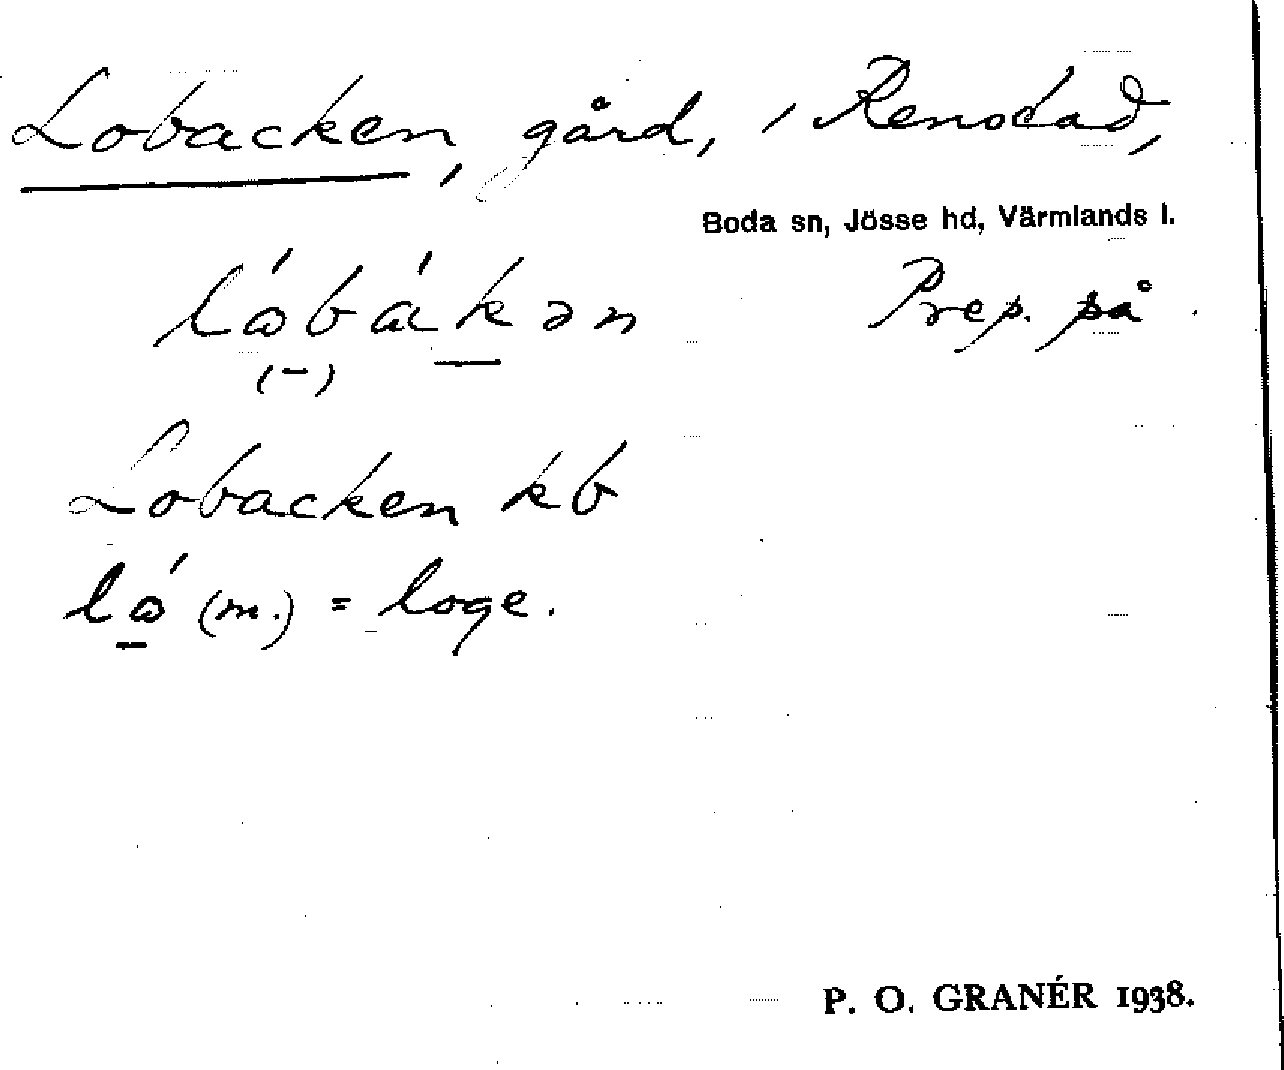 Lobacken, gård, i Renstad,
Boda sn, Jösse hd, Värmlands l.
lɷ́bákən Prep. på.
(-)
Lobacken kb
lɷ́ (m.) = loge.
P. O. GRANÉR 1938.